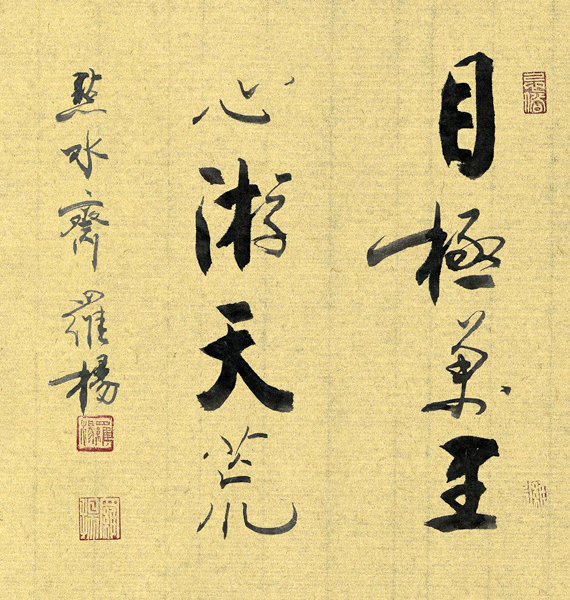 目極萬里
心游天荒
點水齋 羅楊